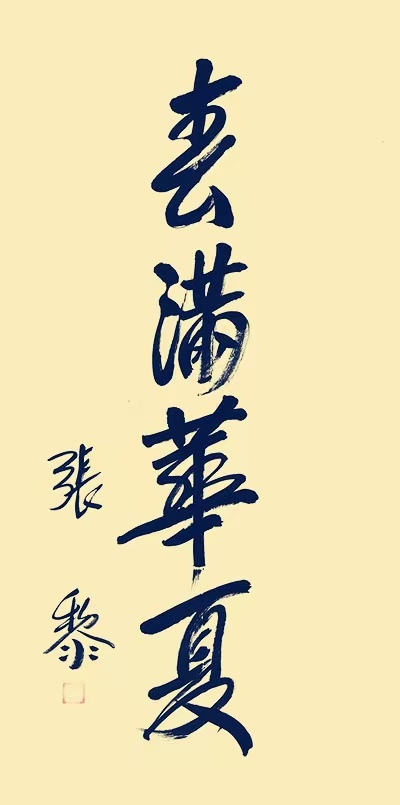 春满華夏
張黎